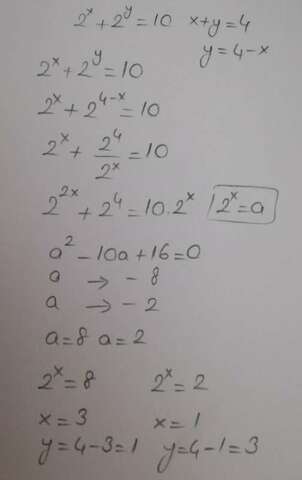 2ˣ + 2ʸ = 10   x + y = 4
y = 4 - x
2ˣ + 2ʸ = 10
2ˣ + 2⁴⁻ˣ = 10
2ˣ + 2⁴/2ˣ = 10
2²ˣ + 2⁴ = 10 . 2ˣ   / 2ˣ = a
a² - 10a + 16 = 0
a → - 8
a → - 2
a = 8 a = 2
2ˣ = 8   2ˣ = 2
x = 3   x = 1
y = 4 - 3 = 1   y = 4 - 1 = 3